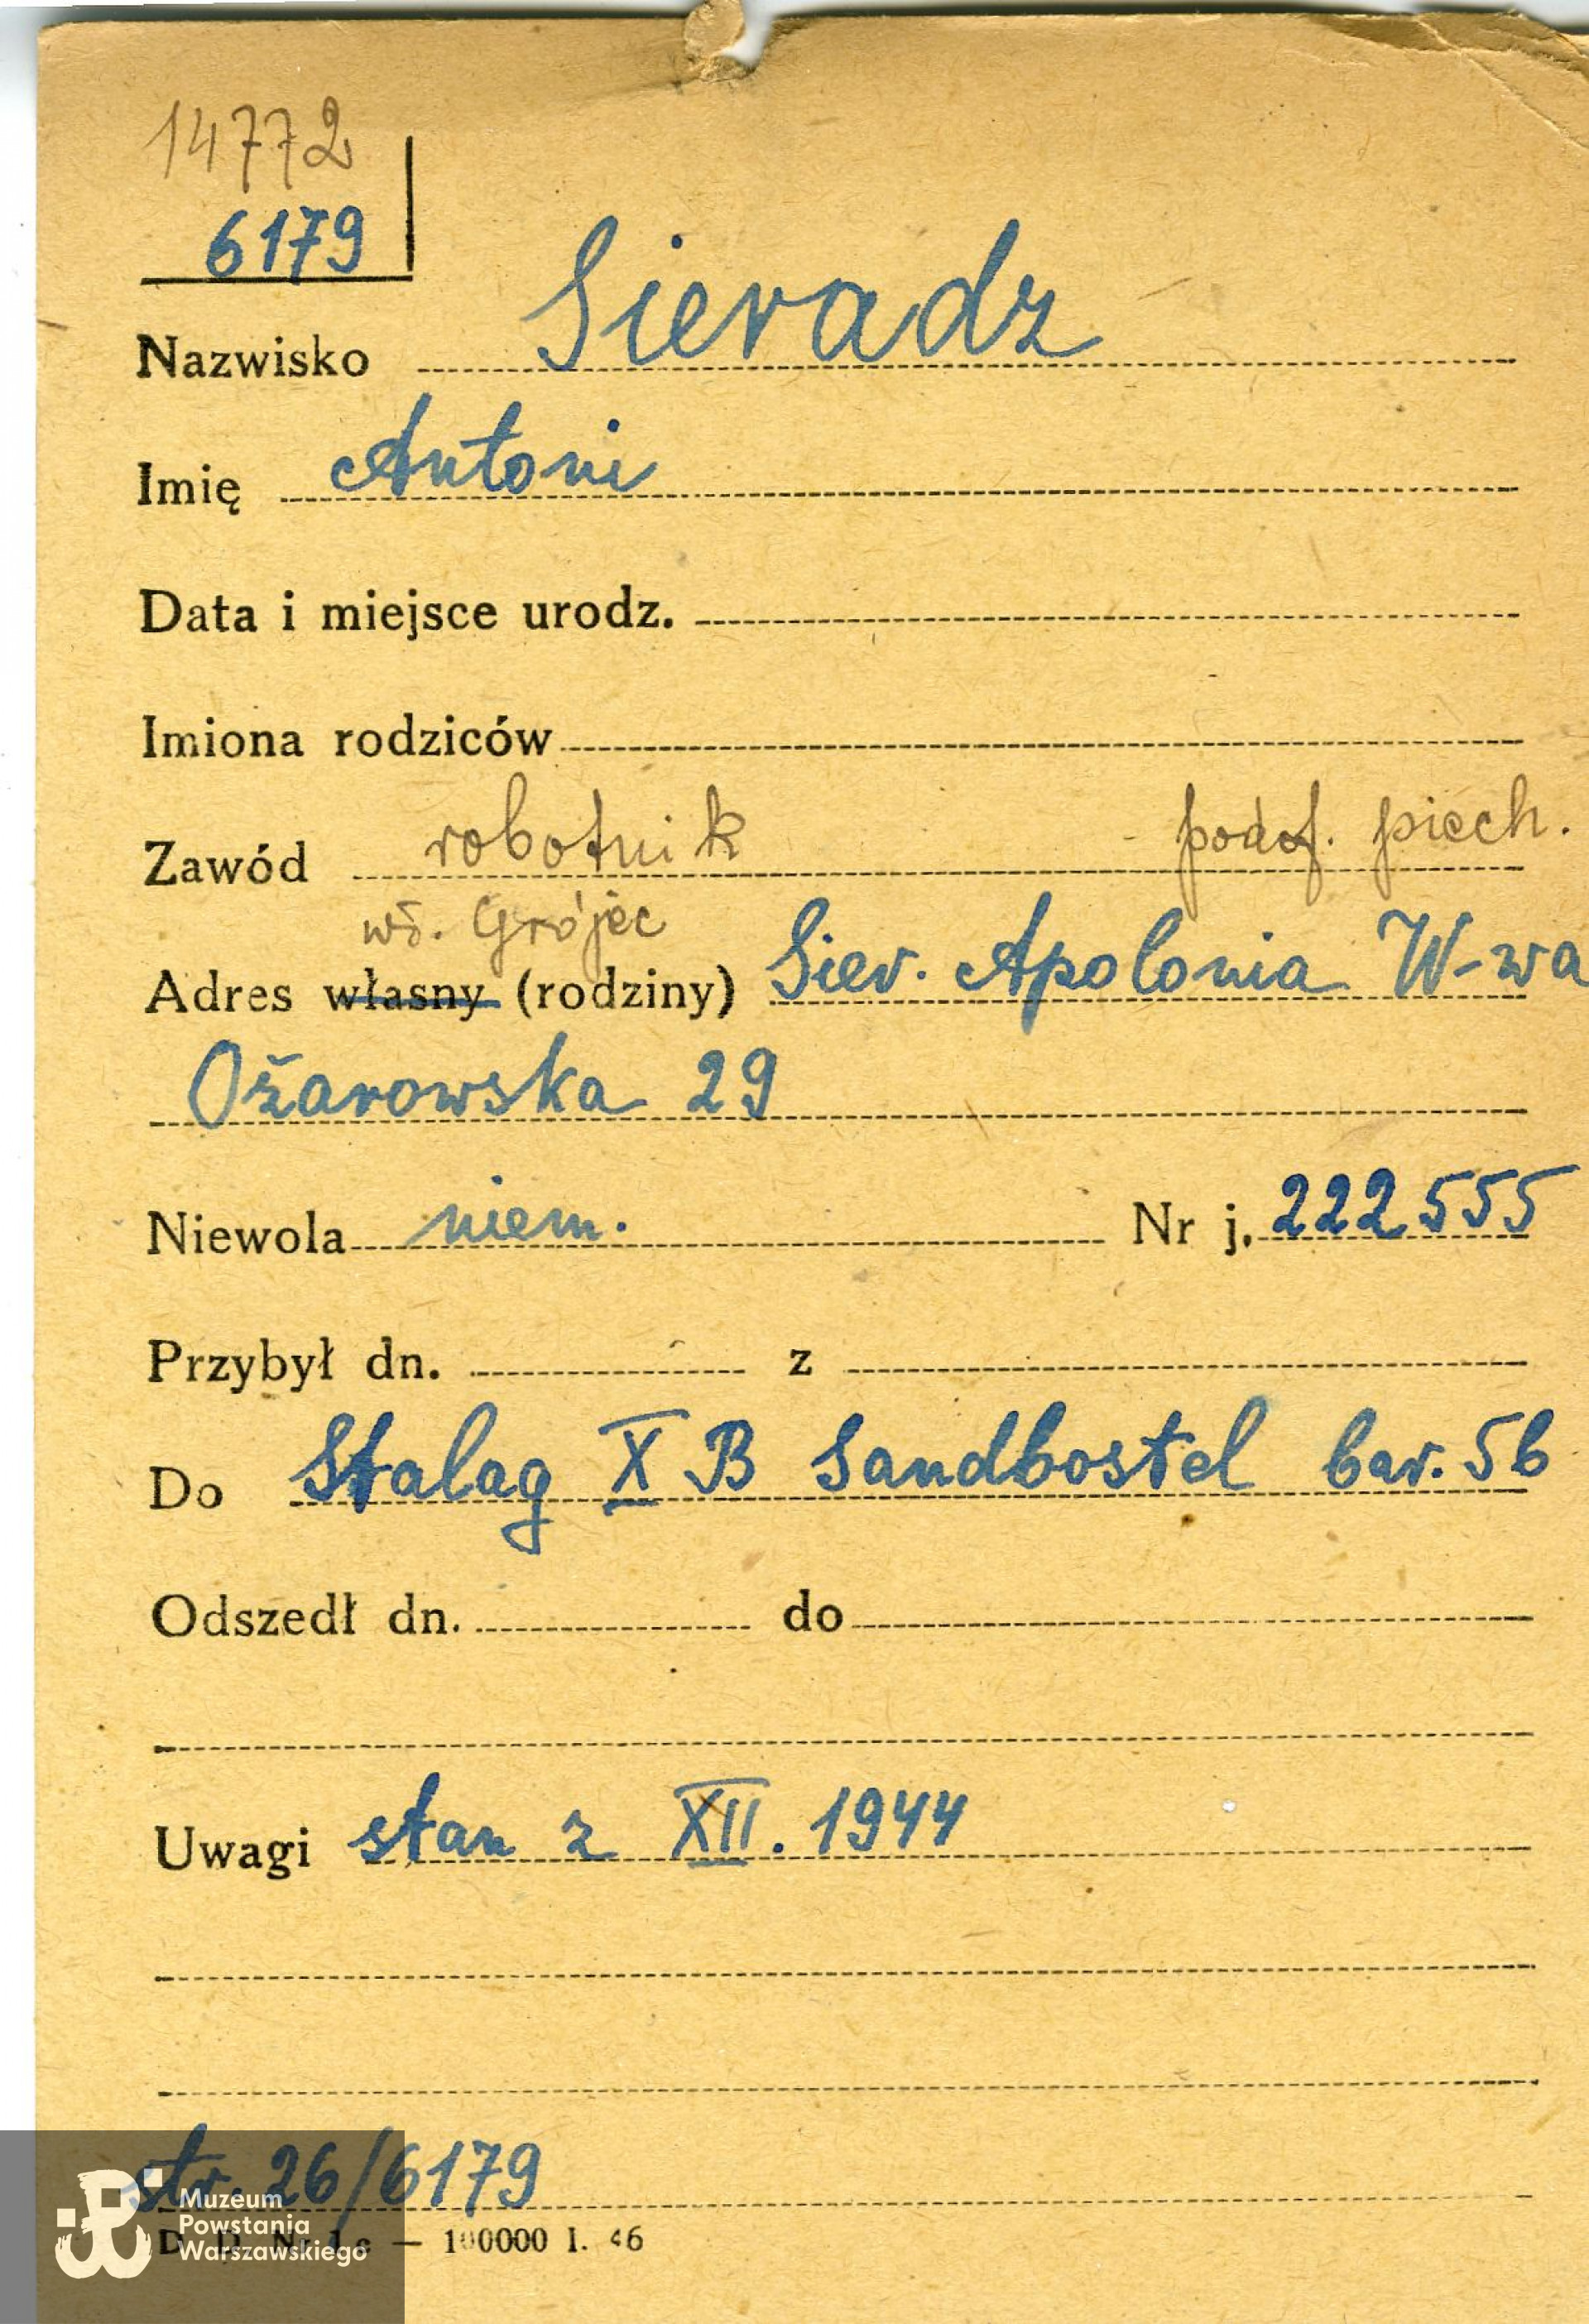 14772
6179
Nazwisko Sieradz
Imię Antoni
Data i miejsce urodz.
Imiona rodziców
Zawód robotnik podof. piech.
wł. Grójec
Adres własny (rodziny) Sier. Apolonia W-wa
Ożarowska 29
Niewola niem. Nr j. 222555
Przybył dn. z
Do Stalag X B Sandbostel bar. 56
Odszedł dn. do
Uwagi stan z XII. 1944
str. 26/6179
— 100000 I. 46
Muzeum
Powstania
Warszawskiego